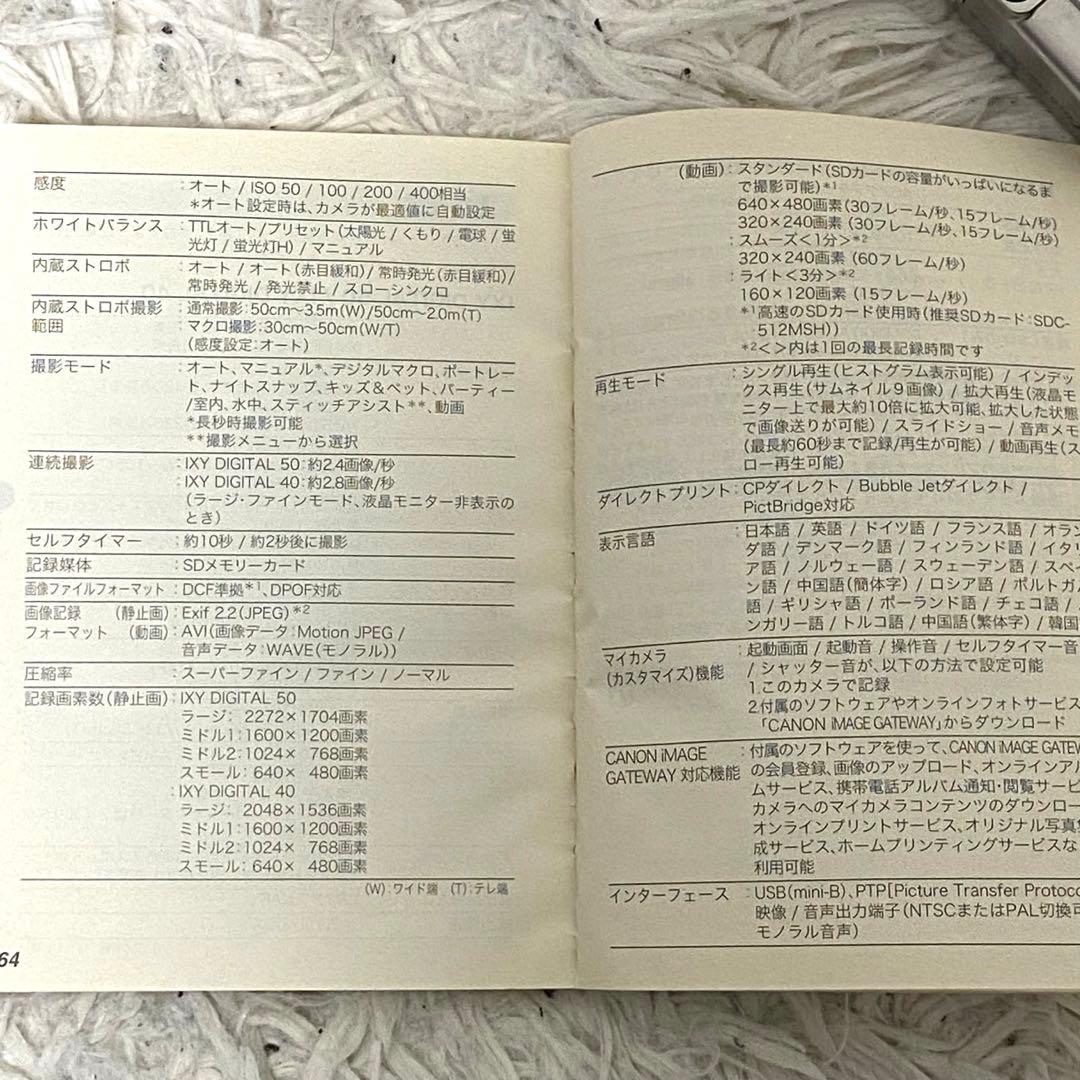 感度 :オート / ISO 50 / 100 / 200 / 400相当
*オート設定時は、カメラが最適値に自動設定
ホワイトバランス :TTLオート/プリセット(太陽光 / くもり / 電球 / 蛍
光灯 / 蛍光灯H) / マニュアル
内蔵ストロボ :オート / オート(赤目緩和) / 常時発光(赤目緩和)/
常時発光 / 発光禁止 / スローシンクロ
内蔵ストロボ撮影 :通常撮影:50cm〜3.5m(W)/50cm〜2.0m(T)
範囲 マクロ撮影:30cm〜50cm(W/T)
(感度設定:オート)
撮影モード :オート、マニュアル*、デジタルマクロ、ポートレー
ト、ナイトスナップ、キッズ&ペット、パーティー
/室内、水中、スティッチアシスト**、動画
*長秒時撮影可能
**撮影メニューから選択
連続撮影 :IXY DIGITAL 50:約2.4画像/秒
:IXY DIGITAL 40:約2.8画像/秒
(ラージ・ファインモード、液晶モニター非表示の
とき)
セルフタイマー :約10秒 / 約2秒後に撮影
記録媒体 :SDメモリーカード
画像ファイルフォーマット :DCF準拠*1、DPOF対応
画像記録 (静止画):Exif 2.2(JPEG)*2
フォーマット (動画):AVI(画像データ:Motion JPEG /
音声データ:WAVE(モノラル))
圧縮率 :スーパーファイン / ファイン / ノーマル
記録画素数(静止画):IXY DIGITAL 50
ラージ: 2272×1704画素
ミドル1:1600×1200画素
ミドル2:1024× 768画素
スモール:640× 480画素
:IXY DIGITAL 40
ラージ: 2048×1536画素
ミドル1:1600×1200画素
ミドル2:1024× 768画素
スモール:640× 480画素
(W):ワイド端 (T):テレ端
64
(動画):スタンダード(SDカードの容量がいっぱいになるま
で撮影可能)*1
640×480画素(30フレーム/秒、15フレーム/秒)
320×240画素(30フレーム/秒、15フレーム/秒)
:スムーズ<1分>*2
320×240画素(60フレーム/秒)
:ライト<3分>*2
160×120画素(15フレーム/秒)
*1高速のSDカード使用時(推奨SDカード:SDC-
512MSH))
*2< >内は1回の最長記録時間です
再生モード :シングル再生(ヒストグラム表示可能) / インデッ
クス再生(サムネイル9画像) / 拡大再生(液晶モ
ニター上で最大約10倍に拡大可能、拡大した状態
で画像送りが可能) / スライドショー / 音声メモ
(最長約60秒まで記録/再生が可能) / 動画再生(ス
ロー再生可能)
ダイレクトプリント:CPダイレクト / Bubble Jetダイレクト /
PictBridge対応
表示言語 :日本語 / 英語 / ドイツ語 / フランス語 / オラン
ダ語 / デンマーク語 / フィンランド語 / イタリ
ア語 / ノルウェー語 / スウェーデン語 / スペイ
ン語 / 中国語(簡体字) / ロシア語 / ポルトガ
語 / ギリシャ語 / ポーランド語 / チェコ語 /
ンガリー語 / トルコ語 / 中国語(繁体字) / 韓国
マイカメラ :起動画面 / 起動音 / 操作音 / セルフタイマー音
(カスタマイズ)機能 / シャッター音が、以下の方法で設定可能
1.このカメラで記録
2.付属のソフトウェアやオンラインフォトサービス
「CANON iMAGE GATEWAY」からダウンロード
CANON iMAGE :付属のソフトウェアを使って、CANON iMAGE GATEW
GATEWAY 対応機能 の会員登録、画像のアップロード、オンラインアル
ムサービス、携帯電話アルバム通知・閲覧サービ
カメラへのマイカメラコンテンツのダウンロー
オンラインプリントサービス、オリジナル写真集
成サービス、ホームプリンティングサービスな
利用可能
インターフェース :USB(mini-B)、PTP[Picture Transfer Protoco
映像 / 音声出力端子(NTSCまたはPAL切換可
モノラル音声)